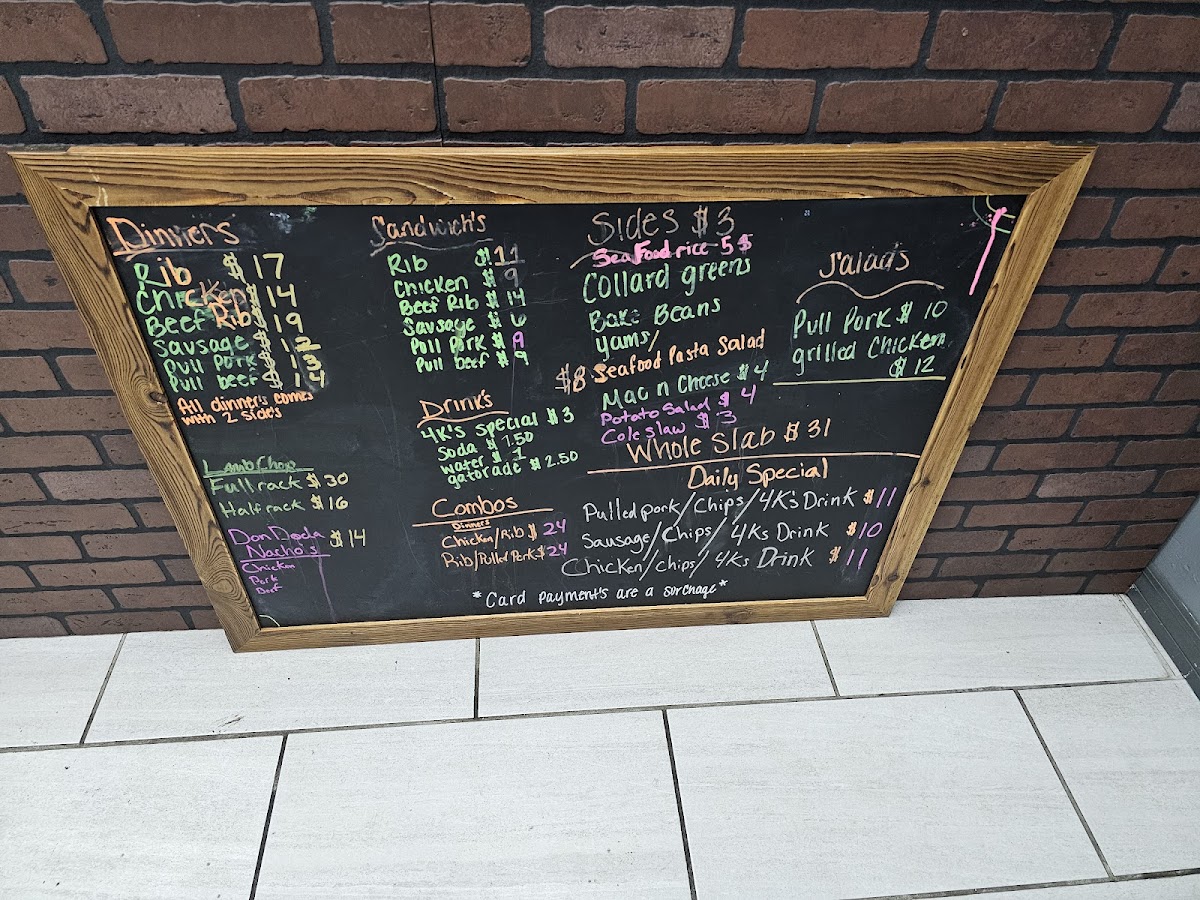 Dinners
Rib $17
Chicken $14
Beef Rib $19
Sausage $12
Pull Pork $13
Pull beef $14
All dinner's comes
with 2 side's
Lamb Chop
Full rack $30
Half rack $16
Don Dada $14
Nacho's
Chicken
Pork
Beef
Sandwich's
Rib $11
Chicken $9
Beef Rib $14
Sausage $6
Pull Pork $9
Pull beef $9
Drink's
4K's special $3
Soda $1.50
water $1
gatorade $2.50
Combos
Dinners
Chicken/Rib $24
Rib/Pulled Pork $24
Sides $3
Seafood rice 5$
Collard greens
Bake Beans
yams/
$8 Seafood Pasta Salad
Mac n Cheese $4
Potato Salad $4
Cole slaw $3
Whole Slab $31
Daily Special
Pulled pork/Chips/4K's Drink $11
Sausage/Chips/4Ks Drink $10
Chicken/chips/4Ks Drink $11
*Card payment's are a surchage*
Salads
Pull Pork $10
grilled Chicken
$12